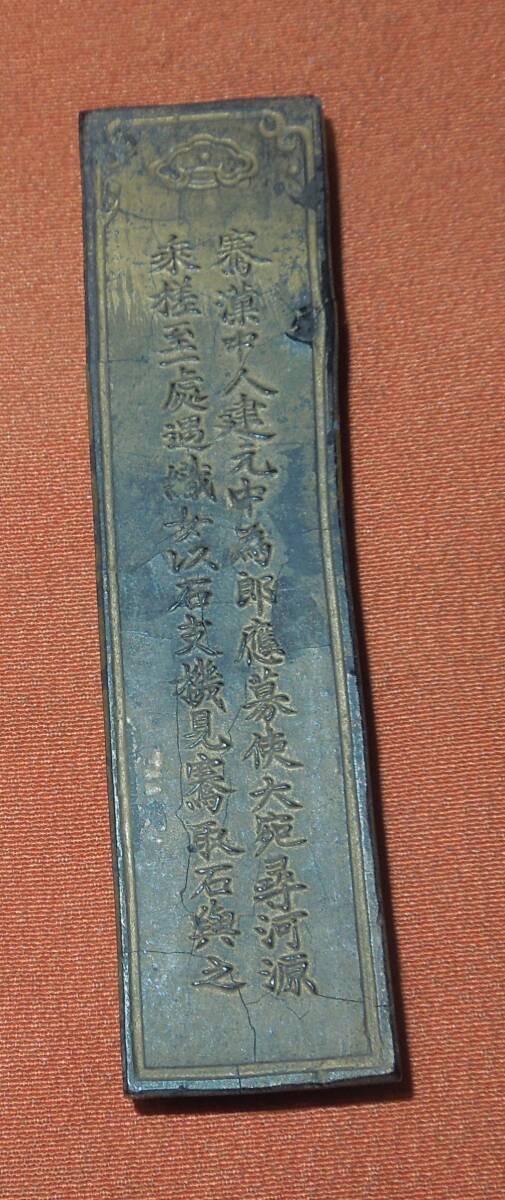 騫漢中人建元中為郎應募使大宛尋河源
乘槎至一處遇織女以石支機見騫取石與之